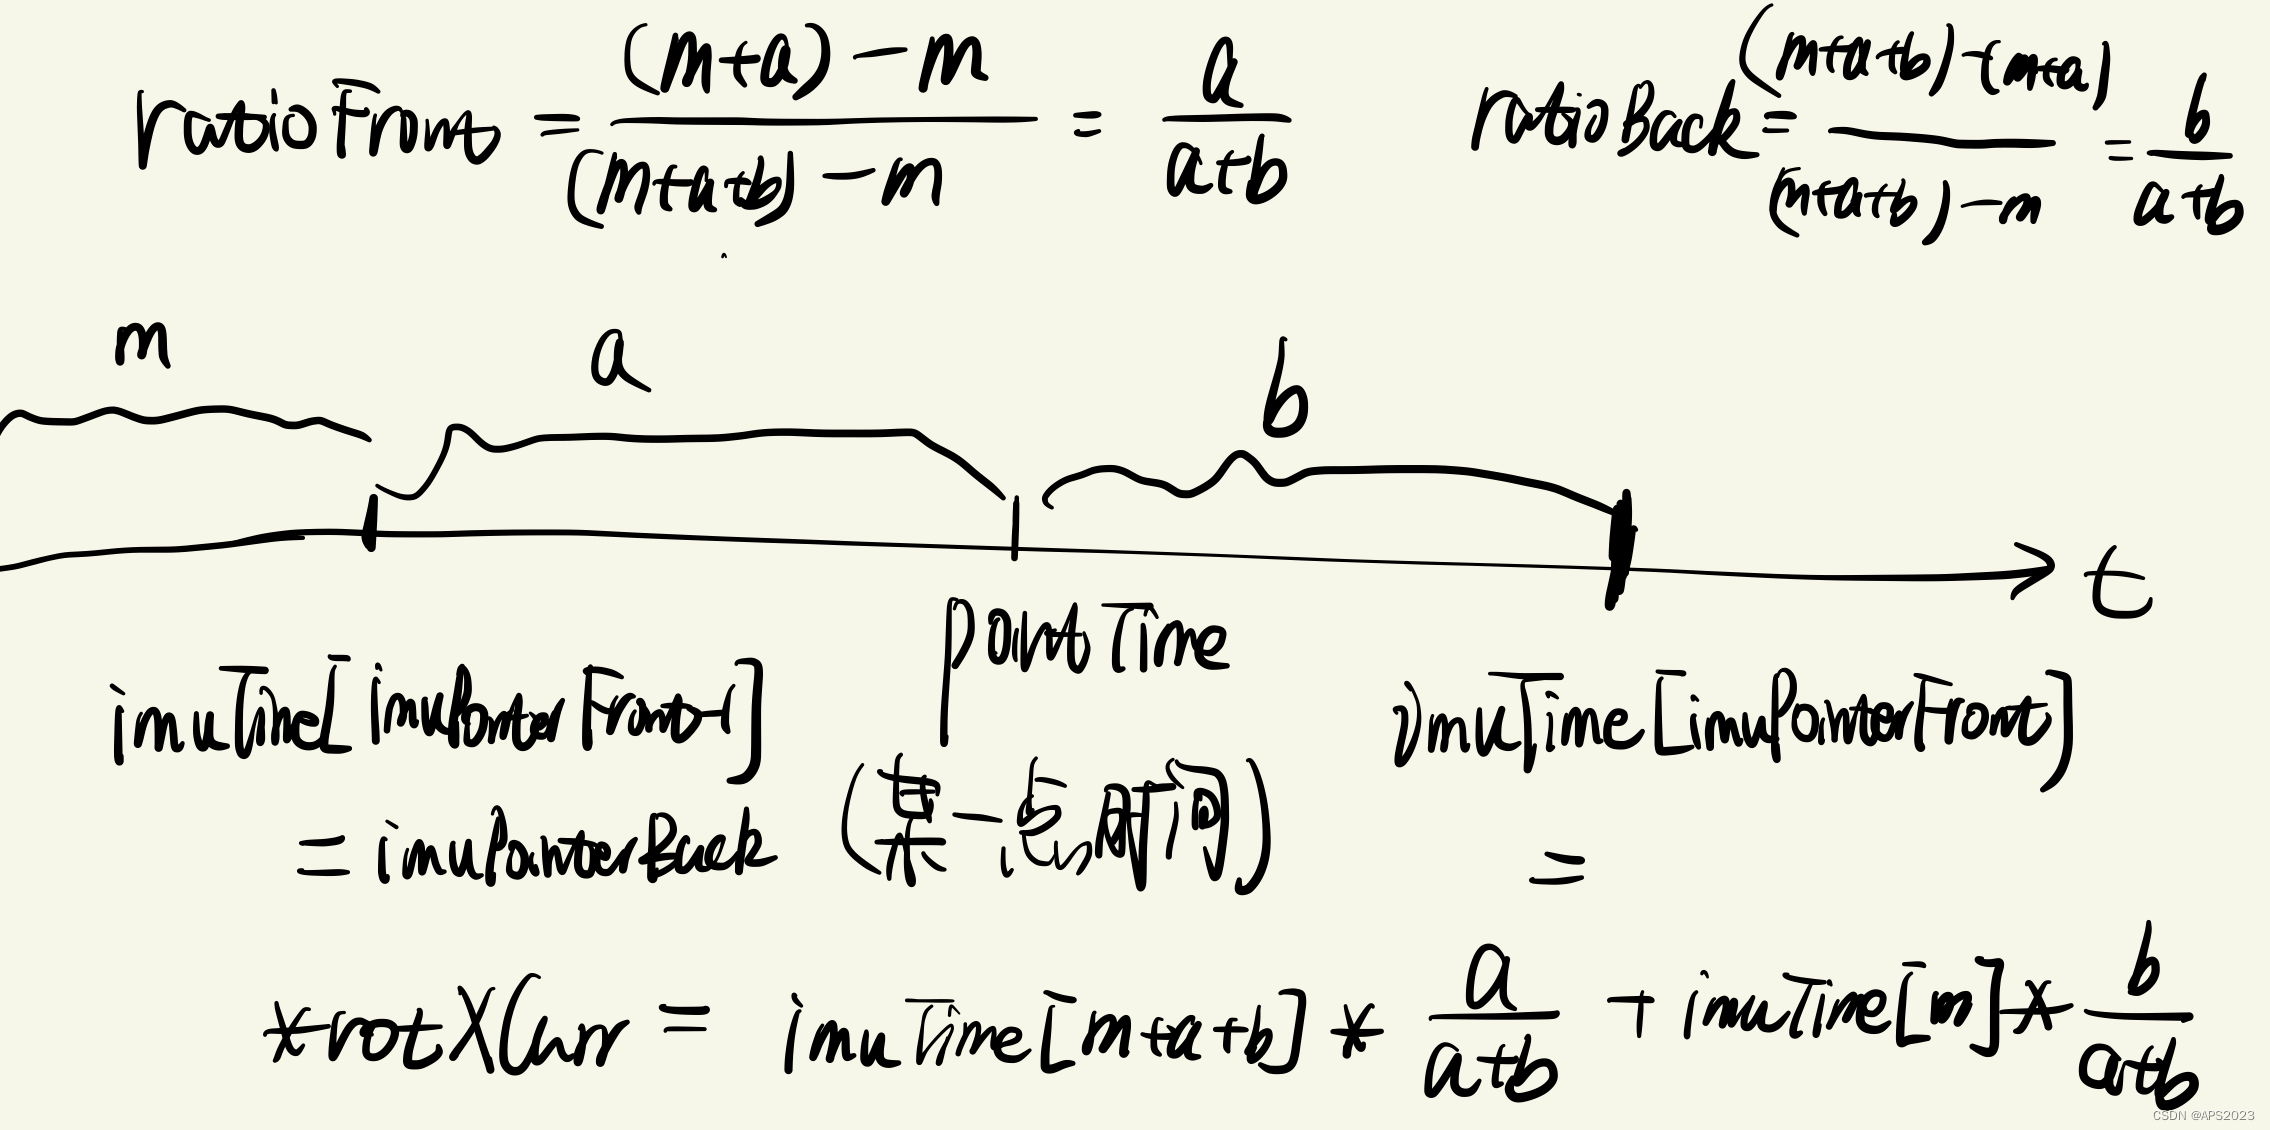 ratioFront = ((m+a)-m)/((m+a+b)-m) = a/(a+b)
ratioBack = ((m+a+b)-(m+a))/((m+a+b)-m) = b/(a+b)
m
a
b
t
imuTime[imuPointerFront-1]
= imuPointerBack
pointTime
(某一点时间)
imuTime[imuPointerFront]
=
*rotXCurr = imuTime[m+a+b] * a/(a+b) + imuTime[m] * b/(a+b)
CSDN @APS2023